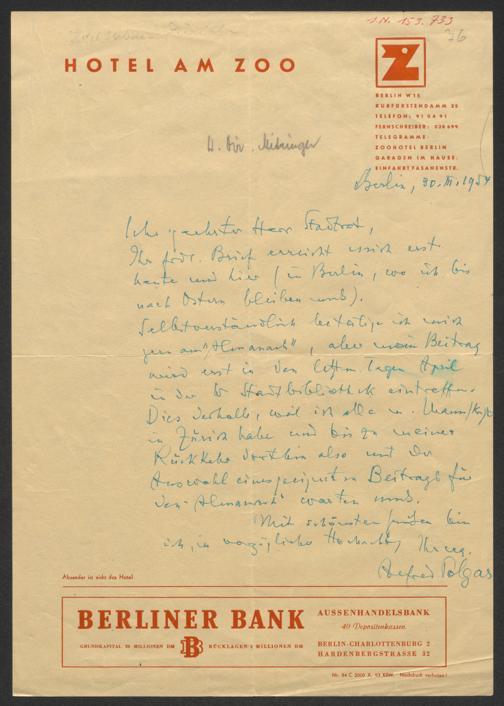 I.N. 153.733
76
HOTEL AM ZOO
Z
BERLIN W 15
KURFÜRSTENDAMM 25
TELEFON: 91 04 91
FERNSCHREIBER: 028 699
TELEGRAMME:
ZOOHOTEL BERLIN
GARAGEN IM HAUSE:
EINFAHRT FASANENSTR.
H. Dir. Mitringer
Berlin, 30. III. 1954
Sehr geehrter Herr Stadtrat,
Ihr frdl. Brief erreicht mich erst
heute und hier (in Berlin, wo ich bis
nach Ostern bleiben muß).
Selbstverständlich beteilige ich mich
gern am "Almanach", aber mein Beitrag
wird erst in den letzten Tagen April
in der Stadtbibliothek eintreffen.
Dies deshalb, weil ich alle m. Manuskripte
in Zürich habe und bis zu meiner
Rückkehr dorthin also mit der
Auswahl eines geeigneten Beitrags für
den "Almanach" warten muß.
Mit schönsten Grüßen bin
ich, in vorzüglicher Hochachtg Ihr erg.
Alfred Polgar
Absender ist nicht das Hotel
BERLINER BANK
GRUNDKAPITAL 20 MILLIONEN DM
B
RÜCKLAGEN 5 MILLIONEN DM
AUSSENHANDELSBANK
40 Depositenkassen
BERLIN-CHARLOTTENBURG 2
HARDENBERGSTRASSE 32
Nachdruck verboten!